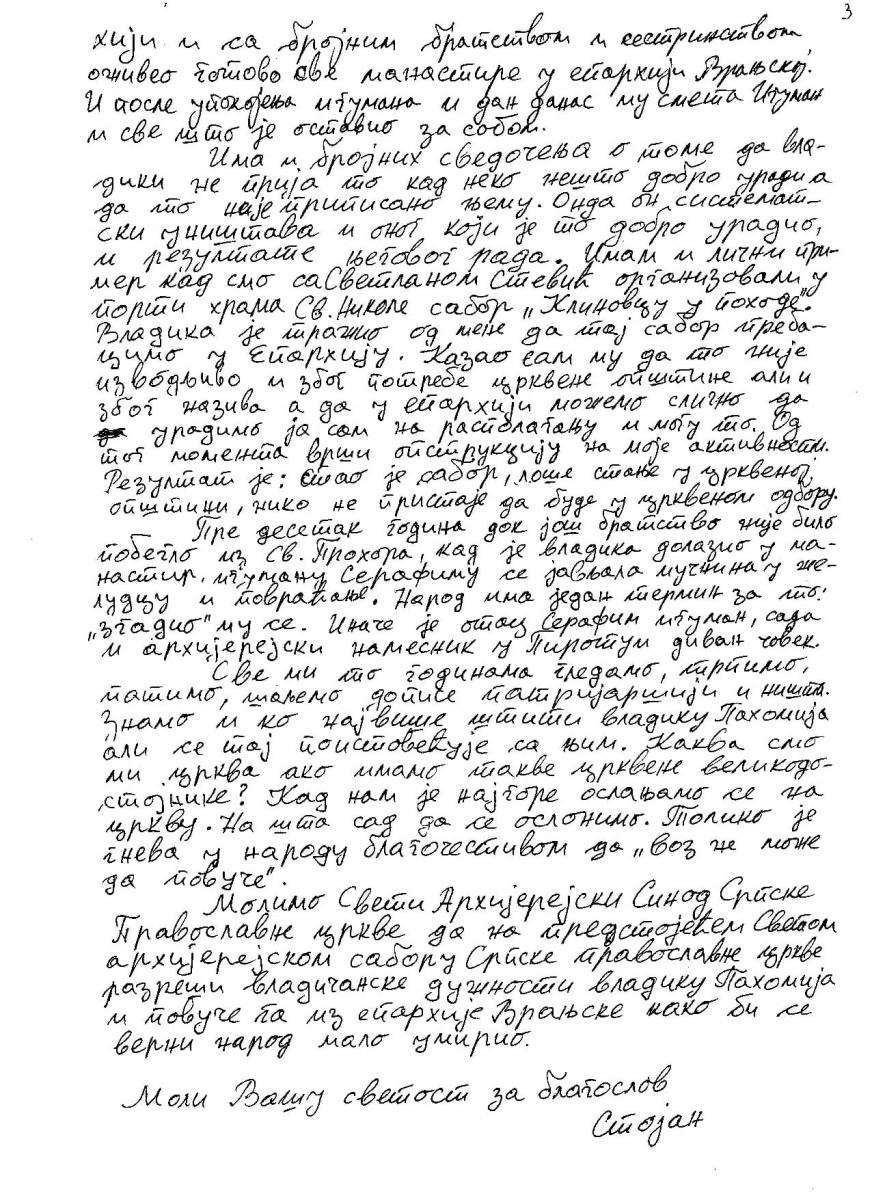 3
хији и са бројним братством и сестринством
оживео готово све манастире у епархији Врањској.
И после упокојења игумана и дан данас му смета Игуман
и све што је оставио за собом.
Има и бројних сведочења о томе да вла-
дики не прија то кад неко нешто добро уради а
да то није приписано њему. Онда он системат-
ски уништава и оног који је то добро урадио,
и резултате његовог рада. Имам и лични при-
мер кад смо са Светланом Стевић организовали у
порти храма Св. Николе сабор „Клиновцу у походе".
Владика је тражио од мене да тај сабор преба-
цимо у Епархију. Казао сам му да то није
изводљиво и због потребе црквене општине али и
због назива а да у епархији можемо слично да
урадимо ја сам на располагању и могу то. Од
тог момента врши опструкцију на моје активности.
Резултат је: стао је сабор, лоше стање у црквеној
општини, нико не пристаје да буде у црквеном одбору.
Пре десетак година док још братство није било
побегло из Св. Прохора, кад је владика долазио у ма-
настир. игуману Серафиму се јављала мучнина у же-
лудцу и повраћање. Народ има један термин за то:
„згадио" му се. Иначе је отац Серафим игуман, сада
и архијерејски намесник у Пироту диван човек.
Све ми то годинама гледамо, трпимо,
патимо, шаљемо дописе патријаршији и ништа.
Знамо и ко највише штити владику Пахомија
али се тај поистовећује са њим. Каква смо
ми црква ако имамо такве црквене великодо-
стојнике? Кад нам је најгоре ослањамо се на
цркву. На шта сад да се ослонимо. Толико је
гнева у народу благочестивом да „воз не може
да повуче".
Молимо Свети Архијерејски Синод Српске
Православне цркве да на предстојећем Светом
архијерејском сабору Српске православне цркве
разреши владичанске дужности владику Пахомија
и повуче га из епархије Врањске како би се
верни народ мало умирио.
Моли Вашу светост за благослов
Стојан